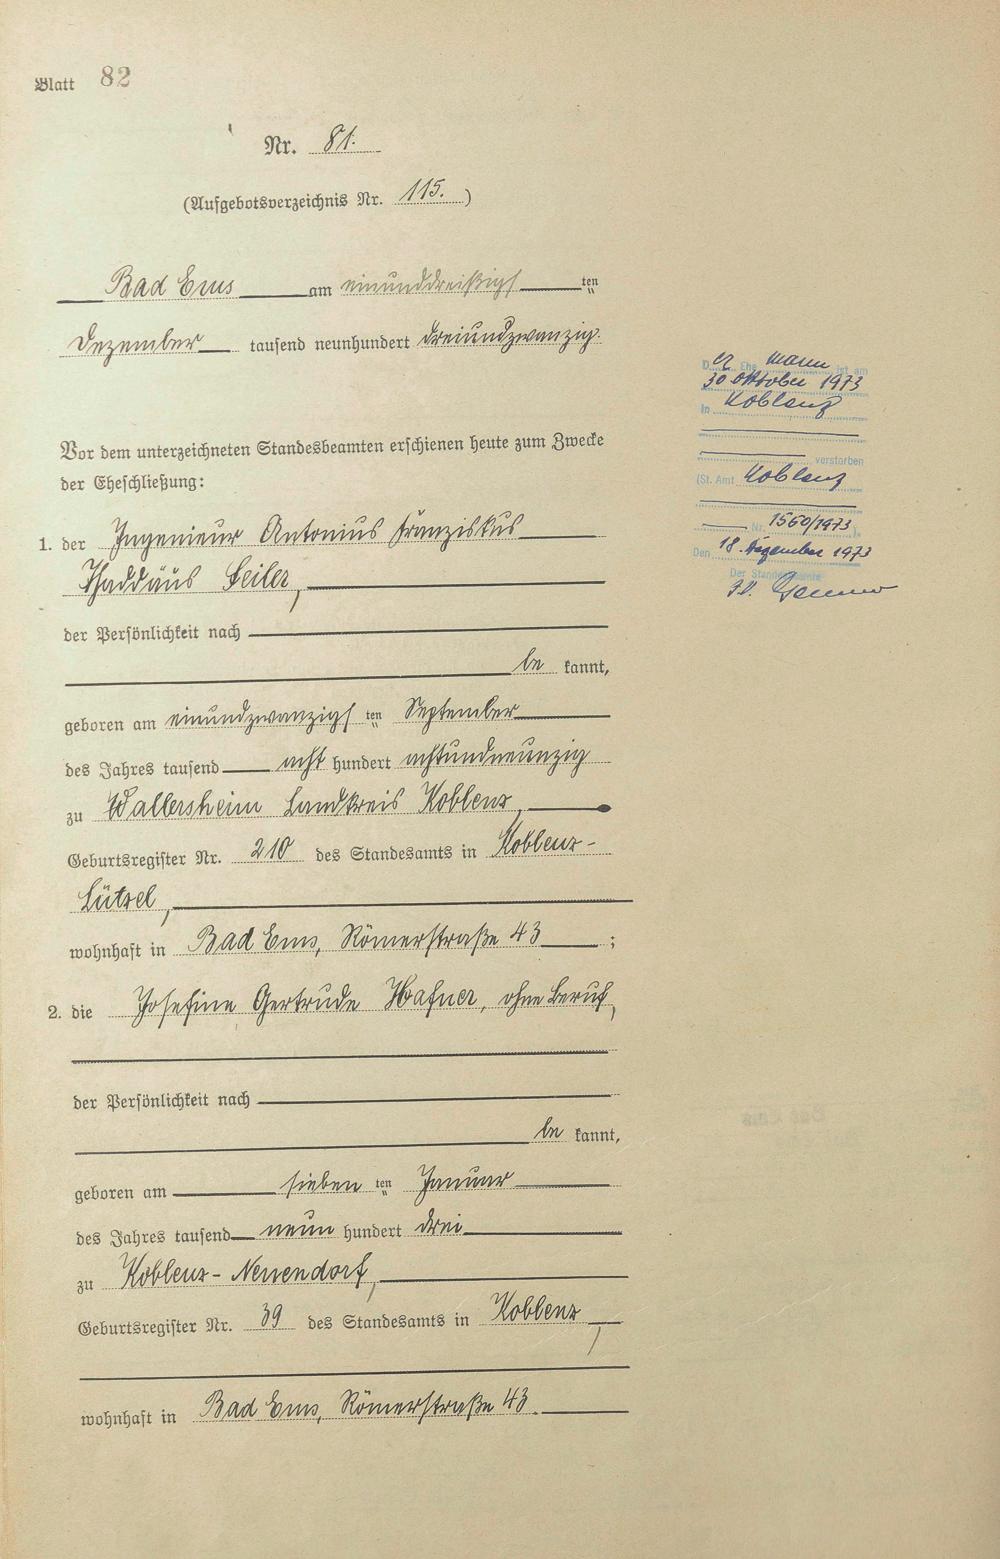 Blatt 82
Nr. 81.
(Aufgebotsverzeichnis Nr. 115.)
Bad Ems am einunddreißigsten
Dezember tausend neunhundert dreiundzwanzig.
Vor dem unterzeichneten Standesbeamten erschienen heute zum Zwecke
der Eheschließung:
1. der Ingenieur Antonius Franziskus
Thaddäus Seiler,
der Persönlichkeit nach
be kannt,
geboren am einundzwanzigsten September
des Jahres tausend acht hundert achtundneunzig
zu Wallersheim Landkreis Koblenz,
Geburtsregister Nr. 210 des Standesamts in Koblenz-
Lützel,
wohnhaft in Bad Ems, Römerstraße 43;
2. die Josefine Gertrude Hafner, ohne Beruf,
der Persönlichkeit nach
be kannt,
geboren am sieben ten Januar
des Jahres tausend neun hundert drei
zu Koblenz-Neuendorf,
Geburtsregister Nr. 39 des Standesamts in Koblenz,
wohnhaft in Bad Ems, Römerstraße 43.
Der Ehemann ist am
30 Oktober 1973
in Koblenz
verstorben
(St. Amt Koblenz
Nr. 1560/1973).
Den 18. Dezember 1973
Der Standesbeamte